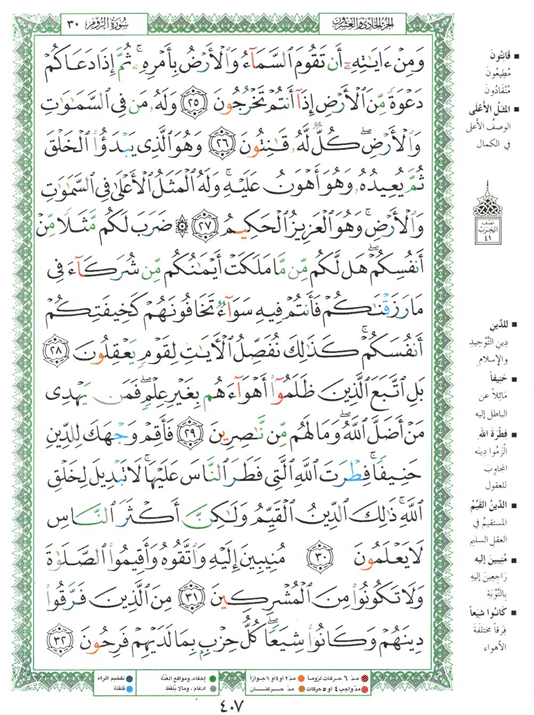 سُورَةُ الرُّومِ ٣٠
الجزء الحادي والعشرون
وَمِنْ ءَايَٰتِهِۦٓ أَن تَقُومَ ٱلسَّمَآءُ وَٱلْأَرْضُ بِأَمْرِهِۦ ۚ ثُمَّ إِذَا دَعَاكُمْ
دَعْوَةً مِّنَ ٱلْأَرْضِ إِذَآ أَنتُمْ تَخْرُجُونَ ٢٥ وَلَهُۥ مَن فِى ٱلسَّمَٰوَٰتِ
وَٱلْأَرْضِ ۖ كُلٌّ لَّهُۥ قَٰنِتُونَ ٢٦ وَهُوَ ٱلَّذِى يَبْدَؤُا۟ ٱلْخَلْقَ
ثُمَّ يُعِيدُهُۥ وَهُوَ أَهْوَنُ عَلَيْهِ ۚ وَلَهُ ٱلْمَثَلُ ٱلْأَعْلَىٰ فِى ٱلسَّمَٰوَٰتِ
وَٱلْأَرْضِ ۚ وَهُوَ ٱلْعَزِيزُ ٱلْحَكِيمُ ٢٧ ۞ ضَرَبَ لَكُم مَّثَلًا مِّنْ
أَنفُسِكُمْ ۖ هَل لَّكُم مِّن مَّا مَلَكَتْ أَيْمَٰنُكُم مِّن شُرَكَآءَ فِى
مَا رَزَقْنَٰكُمْ فَأَنتُمْ فِيهِ سَوَآءٌ تَخَافُونَهُمْ كَخِيفَتِكُمْ
أَنفُسَكُمْ ۚ كَذَٰلِكَ نُفَصِّلُ ٱلْءَايَٰتِ لِقَوْمٍ يَعْقِلُونَ ٢٨
بَلِ ٱتَّبَعَ ٱلَّذِينَ ظَلَمُوٓا۟ أَهْوَآءَهُم بِغَيْرِ عِلْمٍ ۖ فَمَن يَهْدِى
مَنْ أَضَلَّ ٱللَّهُ ۖ وَمَا لَهُم مِّن نَّٰصِرِينَ ٢٩ فَأَقِمْ وَجْهَكَ لِلدِّينِ
حَنِيفًا ۚ فِطْرَتَ ٱللَّهِ ٱلَّتِى فَطَرَ ٱلنَّاسَ عَلَيْهَا ۚ لَا تَبْدِيلَ لِخَلْقِ
ٱللَّهِ ۚ ذَٰلِكَ ٱلدِّينُ ٱلْقَيِّمُ وَلَٰكِنَّ أَكْثَرَ ٱلنَّاسِ
لَا يَعْلَمُونَ ٣٠ مُنِيبِينَ إِلَيْهِ وَٱتَّقُوهُ وَأَقِيمُوا۟ ٱلصَّلَوٰةَ
وَلَا تَكُونُوا۟ مِنَ ٱلْمُشْرِكِينَ ٣١ مِنَ ٱلَّذِينَ فَرَّقُوا۟
دِينَهُمْ وَكَانُوا۟ شِيَعًا ۖ كُلُّ حِزْبٍۭ بِمَا لَدَيْهِمْ فَرِحُونَ ٣٢
قَانِتُونَ
مُطِيعُونَ
مُنْقَادُونَ
المَثَلُ الأَعْلَى
الوصف الأعلى
في الكمال
نصف
الحزب
٤١
لِلدِّينِ
دِينِ التَّوْحِيدِ
والإسلام
حَنِيفاً
مَائِلاً عن
الباطل إليه
فِطْرَةَ الله
الْزَمُوا دِينَه
المُجاوِبَ
للعقول
الدِّينُ القَيِّمُ
المستقيمُ في
العقل السليم
مُنِيبِينَ إليه
رَاجِعِينَ إليه
بالتَّوْبَةِ
كَانُوا شِيَعاً
فِرَقاً مختلفةَ
الأهواء
مدّ ٦ حركات لزوماً
مدّ ٢ أو ٤ أو ٦ جوازاً
إخفاء، ومواقع الغُنَّة
تفخيم الراء
مدّ واجب ٤ أو ٥ حركات
مدّ حركتان
إدغام، وما لا يُلفظ
قلقلة
٤٠٧